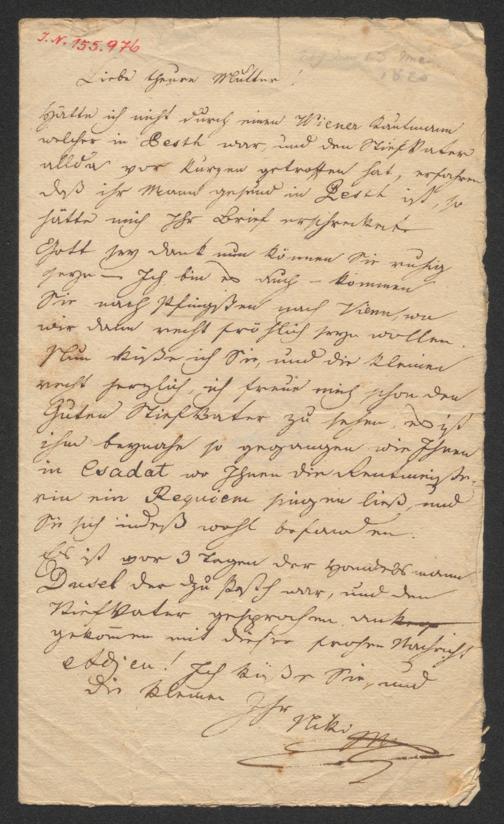 I. N. 155.976
Liebe theure Mutter!
Hätte ich nicht durch einen Wiener Kaufmann
welcher in Pesth war, und den Stiefvater
allda vor kurzen getroffen hat, erfahren
daß ihr Mann gesund in Pesth ist, so
hätte mich Ihr Brief erschreckt.
Gott sey dank nun können Sie ruhig
seyn — Ich bin es auch — kommen
Sie nach Pfingsten nach Wien, wo
wir dann recht fröhlich seyn wollen.
Nun küße ich Sie, und die Kleinen
recht herzlich, ich freue mich schon den
guten Stiefvater zu sehen, es ist
ihm beynahe so gegangen wie Ihnen
in Csadat wo Ihnen die Rentmeiste-
rin ein Requiem singen ließ, und
Sie sich indeß wohl befanden.
Es ist vor 3 Tagen der Handelsmann
der zu Pesth war, und den
Stiefvater gesprochen
gekommen mit dieser frohen Nachricht
Adieu! Ich küße Sie, und
die Kleinen
Ihr
Niki